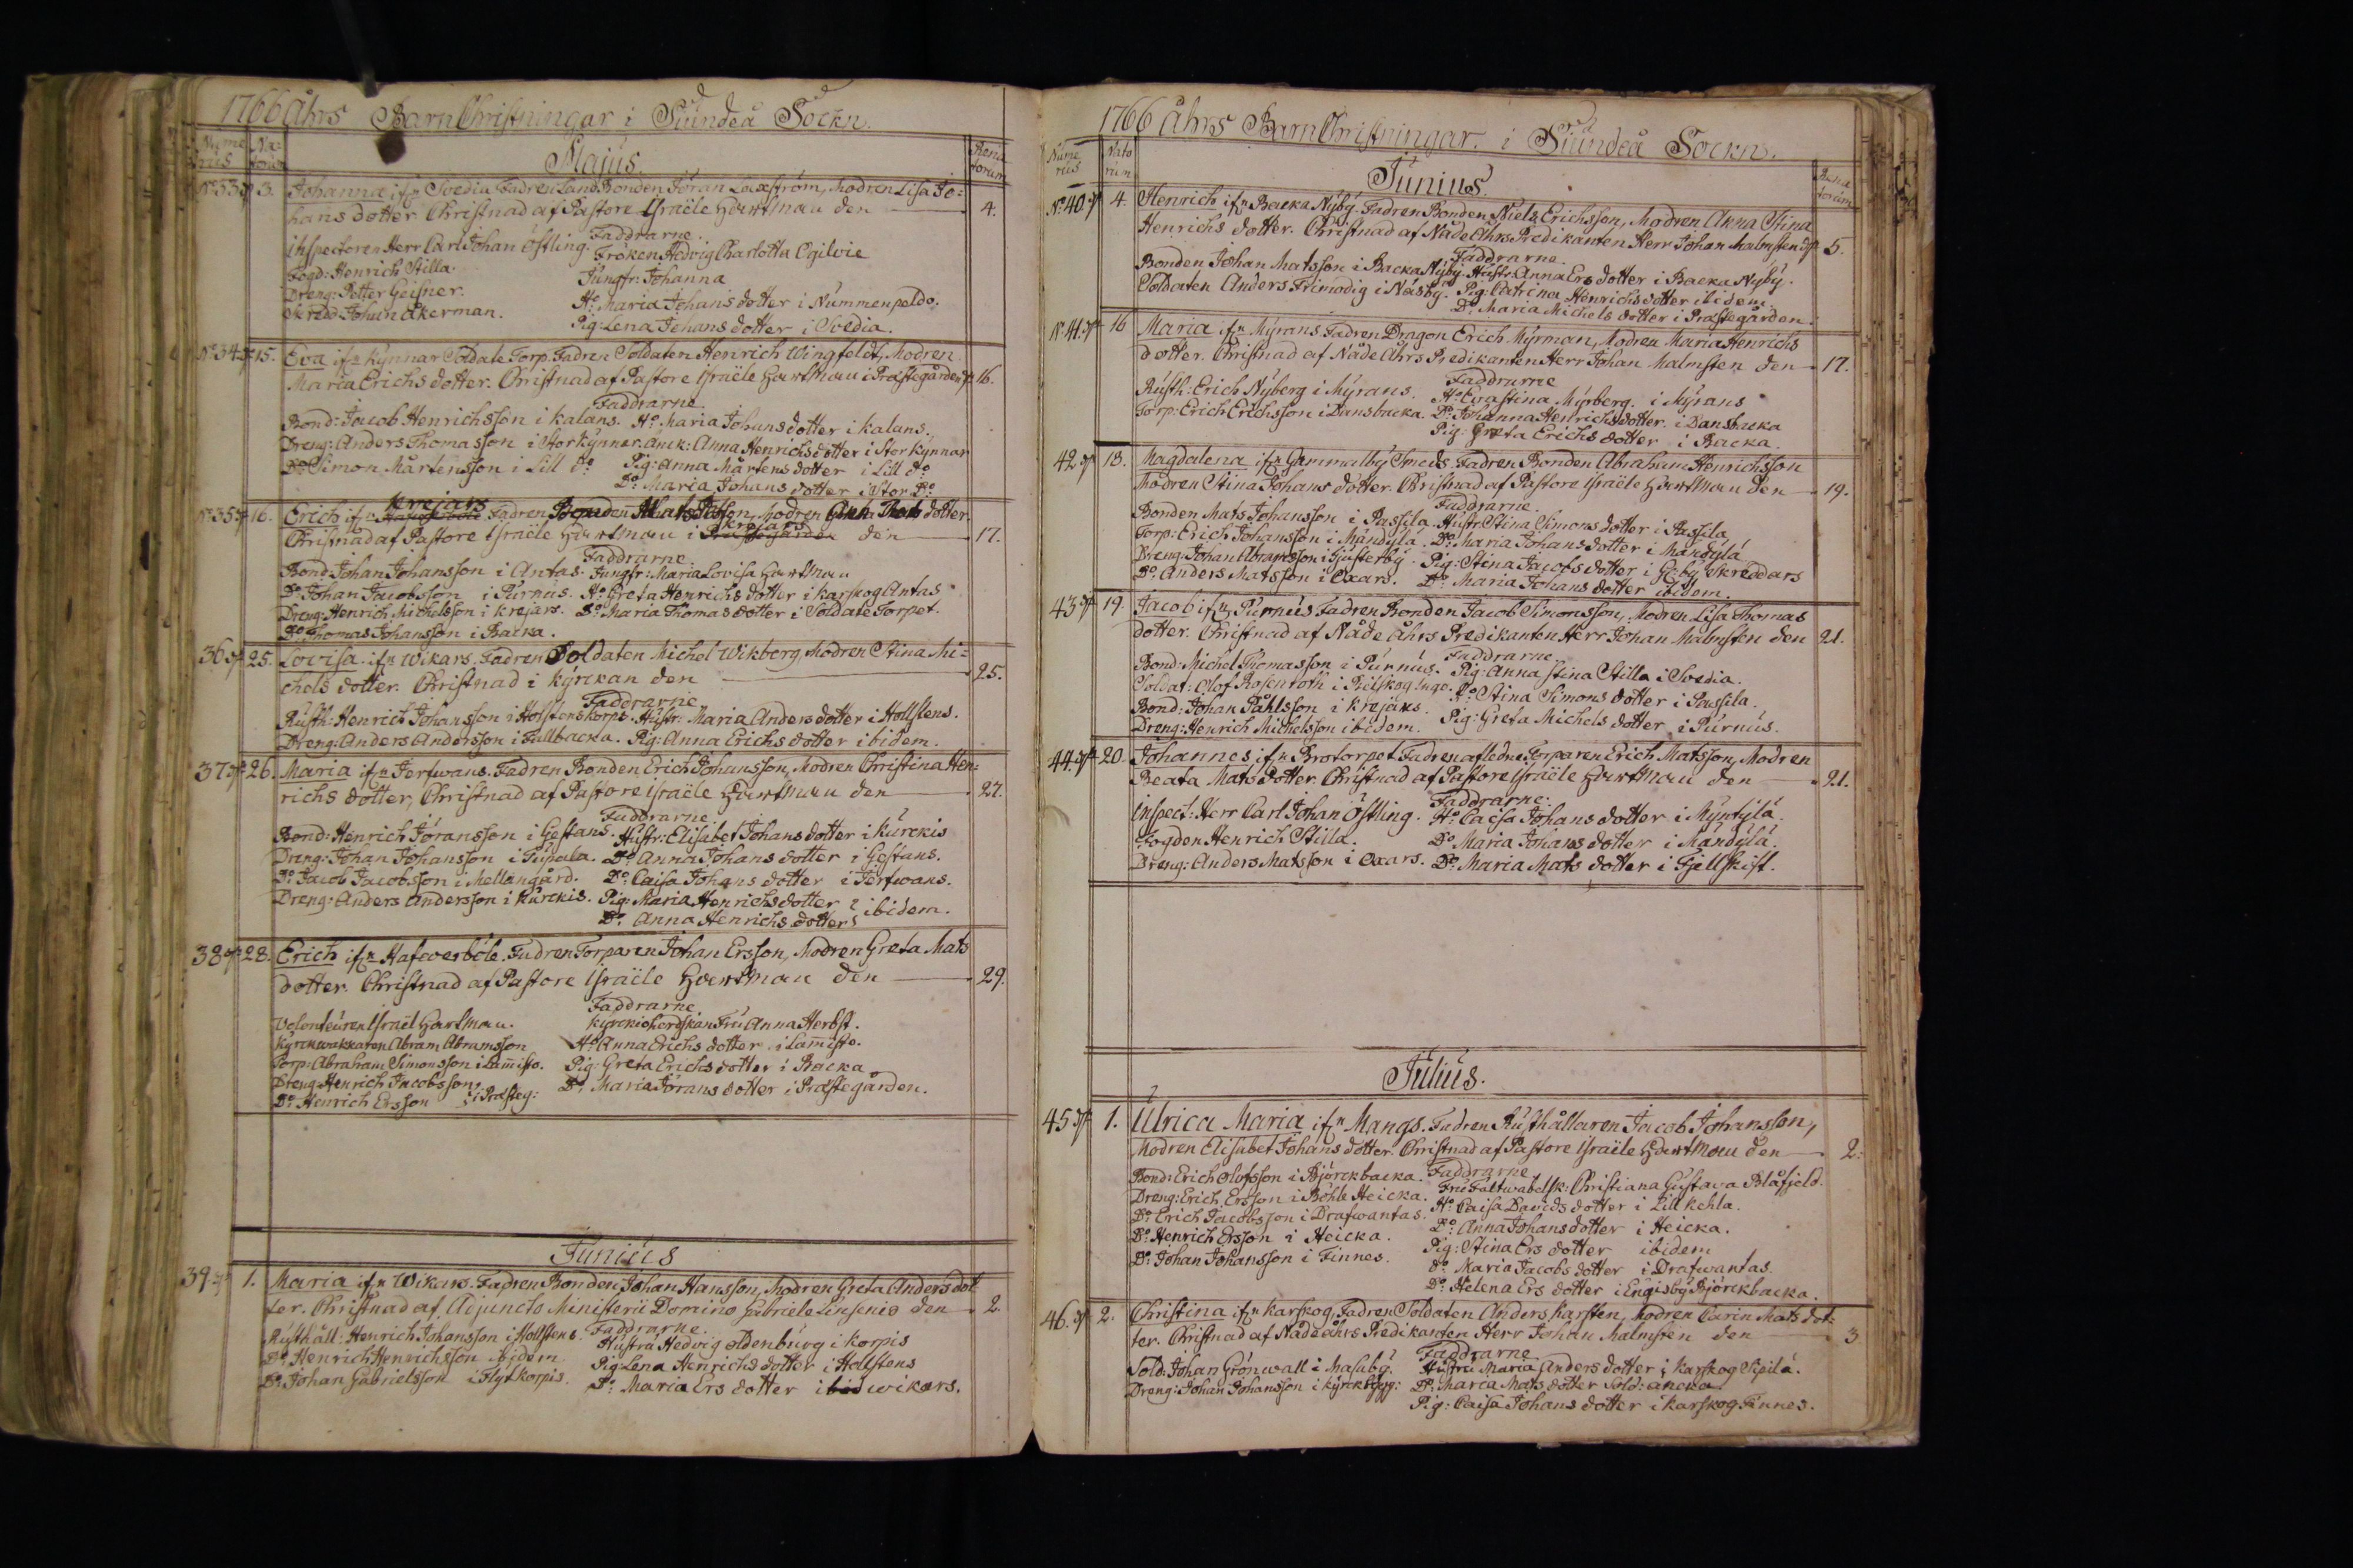 1766 Åhrs BarnChristningar i Siundeå Sockn.
Nume rus Na- torum Majus. Rena torum
No 33 3. Johanna if:n Svedia Fadren LandBonden Jöran Laxström, Modren Lisa Jo=
hans dotter Christnad af Pastore Israële Hartman den 4.
Faddrarne.
Inspectoren Herr Carl Johan Östling. Fröken Hedvig Charlotta Ogilvie
Fogd: Henrich Stilla. Jungfr: Johanna
Dreng: Petter Geisner. Ho Maria Johans dotter i Nummenpeldo.
Skredd: Johan Åkerman. Pig: Lena Johans dotter i Svedia.
No 34 15. Eva if:n Kynnar Soldate Torp. Fadren Soldaten Henrich Wingfeldt, Modren
Maria Erichs dotter. Christnad af Pastore Israële Hartman i Prästegården 16.
Faddrarne
Bond: Jacob Henrichsson i Kalans. Ho Maria Johans dotter i Kalans.
Dreng: Anders Thomasson i Storkynnar. Anck: Anna Henrichsdotter i Stor Kynnar
Do Simon Mårtensson i Lill do Pig: Anna Mårtens dotter i Lill do
Do Maria Johans dotter i Stor Do
Krejars
No 35 16. Erich if:n Fadren Bonden Mats dotter.
Krejars
Christnad af Pastore Israële Hartman i Prästegården den 17.
Faddrarne
Bond: Johan Johansson i Antas. Jungfr: Maria Lovisa Hartman
Do Johan Jacobsson i Purnas. Ho Greta Henrichs dotter i Karskog Antas
Dreng: Henrich Michelsson i Krejars. Do Maria Thomas dotter i Soldate Torpet.
Do Thomas Johansson i Backa.
36 25. Lovisa if:n Wikars. Fadren Soldaten Michel Wikberg, Modren Stina Mi=
chels dotter. Christnad i Kyrckan den 25.
Faddrarne
Rusth: Henrich Johansson i Holstens Korpis. Hustr: Maria Anders dotter i Hollstens.
Dreng: Anders Andersson i Fallbacka. Pig: Anna Erichs dotter ibidem.
37 26. Maria if:n Jerfwans. Fadren Bonden Erich Johansson, Modren Christina Hen=
richs dotter, Christnad af Pastore Israële Hartman den 27.
Faddrarne
Bond: Henrich Jöransson i Gestans. Hustr: Elisabet Johans dotter i Kurckis
Dreng: Johan Johansson i Tupala. Do Anna Johans dotter i Gestans.
Do Jacob Jacobsson i Mellangård. Do Caisa Johans dotter i Jerfwans.
Dreng: Anders Andersson i Kurckis. Pig: Maria Henrichsdotter
Do Anna Henrichs dotter ibidem.
38 28. Erich if:n Hafwerböle. Fadren Torparen Johan Ersson, Modren Greta Mats
dotter. Christnad af Pastore Israële Hartman den 29.
Faddrarne
Volonteuren Israël Hartman. Kyrckioherdskan Fru Anna Herbst.
Kyrckwaktaren Abram Abramsson Ho Anna Erichs dotter i Lam̄isto.
Torp: Abraham Simonsson i Lam̄isto. Pig: Greta Erichs dotter i Backa
Dreng: Henrich Jacobsson Do Maria Jörans dotter i Prästegården.
Do Henrich Ersson i Prästeg:
Junius
39 1. Maria if:n Wikars. Fadren Bonden Johan Hansson, Modren Greta Anders dot
ter. Christnad af Adjuncto Ministerii Domino Gabriele Linsenio den 2
Faddrarne
Rusthåll: Henrich Johansson i Hollstens. Hustru Hedvig Oldenburg i Korpis
Do Henrich Henrichsson ibidem Pig: Lena Henrichs dotter i Hollstens
Do Johan Gabrielsson i Flyt Korpis. Do Maria Ers dotter i Wikars.
1766 Åhrs BarnChristningar. i Siundeå Sockn.
Nume rus Nato rum Junius. Rena torum
No 40 4. Henrich if:n Backa Nyby. Fadren Bonden Niels Erichsson, Modren Anna Stina
Henrichs dotter. Christnad af NådeÅhrs Predikanten Herr Johan Malmsten d: 5.
Faddrarne
Bonden Johan Matsson i Backa Nyby. Hustr: Anna Ers dotter i Backa Nyby.
Soldaten Anders Frimodig i Näsby. Pig: Catrina Henrichsdotter ibidem
Do Maria Michels dotter i Prästegården.
No 41 16 Maria if:n Myrans Fadren Dragon Erich Myrman, Modren Maria Henrichs
dotter. Christnad af NådeÅhrs Predikanten Herr Johan Malmsten den 17.
Faddrarne
Rusth: Erich Nyberg i Myrans. Ho Eva Stina Myrberg. i Myrans
Torp: Erich Erichsson i Dansbacka. Do Johanna Henrichsdotter. i Dansbacka
Pig: Greta Erichs dotter i Backa.
42 18. Magdalena if:n Gammalby Smeds. Fadren Bonden Abraham Henrichsson
Modren Stina Johans dotter. Christnad af Pastore Israële Hartman den 19.
Faddrarne
Bonden Mats Johansson i Passila. Hustr: Stina Simons dotter i Passila
Torp: Erich Johansson i Mändylä. Do Maria Johans dotter i Mändylä
Dreng: Johan Abramsson i Gjusterby. Pig: Stina Jacobs dotter i G: by Skreddars
Do Anders Matsson i Oxars. Do Maria Johans dotter ibidem.
43 19. Jacob if:n Purnus Fadren Bonden Jacob Simonsson, Modren Lisa Thomas
dotter. Christnad af Nåde Åhrs Predikanten Herr Johan Malmsten den 21.
Faddrarne
Bond: Michel Thomasson i Purnus. Pig: Anna Stina Stilla i Svedia.
Soldat: Olof Rosenroth i Ingo. Do Stina Simons dotter i Passila.
Bond: Johan Påhlsson i Krejars. Pig: Greta Michels dotter i Purnus.
Dreng: Henrich Michelsson ibidem.
44 20. Johannes if:n Brotorpet Fadren afledne Torparen Erich Matsson, Modren
Beata Mats dotter. Christnad af Pastore Israële Hartman den 21.
Faddrarne.
Inspect: Herr Carl Johan Östling. Ho Caisa Johans dotter i Myntylä.
Fogden Henrich Stilla. Do Maria Johans dotter i Mändylä.
Dreng: Anders Matsson i Oxars. Do Maria Mats dotter i Fjellskift.
Julius.
45 1. Ulrica Maria if:n Mangs. Fadren Rusthållaren Jacob Johansson,
Modren Elisabet Johans dotter. Christnad af Pastore Israële Hartman den 2.
Faddrarne
Bond: Erich Olofsson i Björckbacka. Fru Fältwäbelsk: Christiana Gustava Blåfjeld.
Dreng: Erich Ersson i Böhle Heicka. Ho Caisa Davids dotter i Lill Kehla.
Do Erich Jacobsson i Drafwantas. Do Anna Johans dotter i Heicka.
Do Henrich Ersson i Heicka. Pig: Stina Ers dotter ibidem
Do Johan Johansson i Finnes. Do Maria Jacobs dotter i Drafwantas.
Do Helena Ers dotter i Engisby Björckbacka.
46. 2. Christina if:n Karskog. Fadren Soldaten Anders Karsten, Modren Carin Mats dot=
ter. Christnad af Nådeåhrs Predikanten Herr Johan Malmsten den 3
Faddrarne
Sold: Johan Grönwall i Masuby. Hustru Maria Anders dotter i Karskog Sipilä.
Dreng: Johan Johansson i Kyrckbygg: Do Maria Mats dotter Sold: ancka
Pig: Caisa Johans dotter i Karskog Finnes.